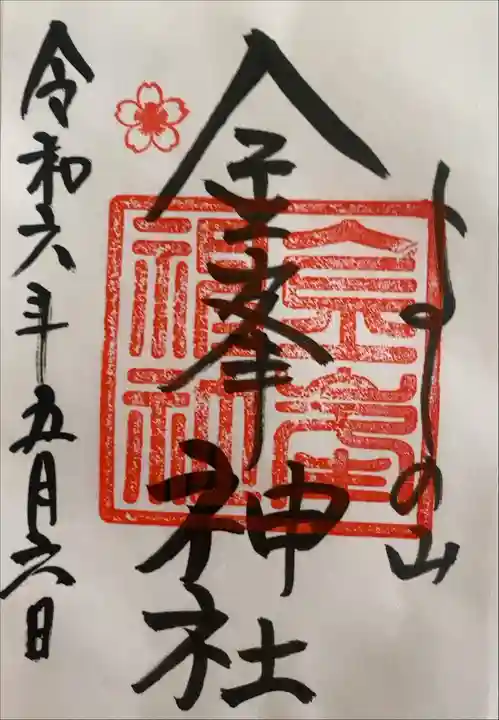 よしの山
金峯神社
金峯神社
令和六年五月六日